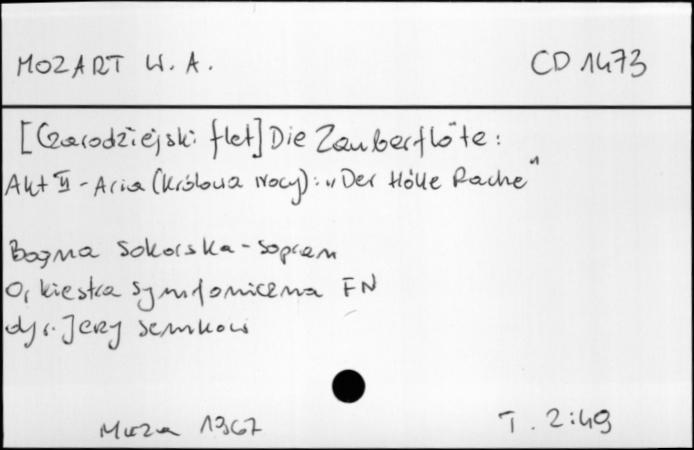 MOZART W. A. CD 1473
[Czarodziejski flet] Die Zauberflöte:
Akt II - Aria (Królowa Nocy): „Der Hölle Rache"
Bogna Sokorska - sopran
Orkiestra Symfoniczna FN
dyr. Jerzy Semkow
Muza 1967 T. 2:49